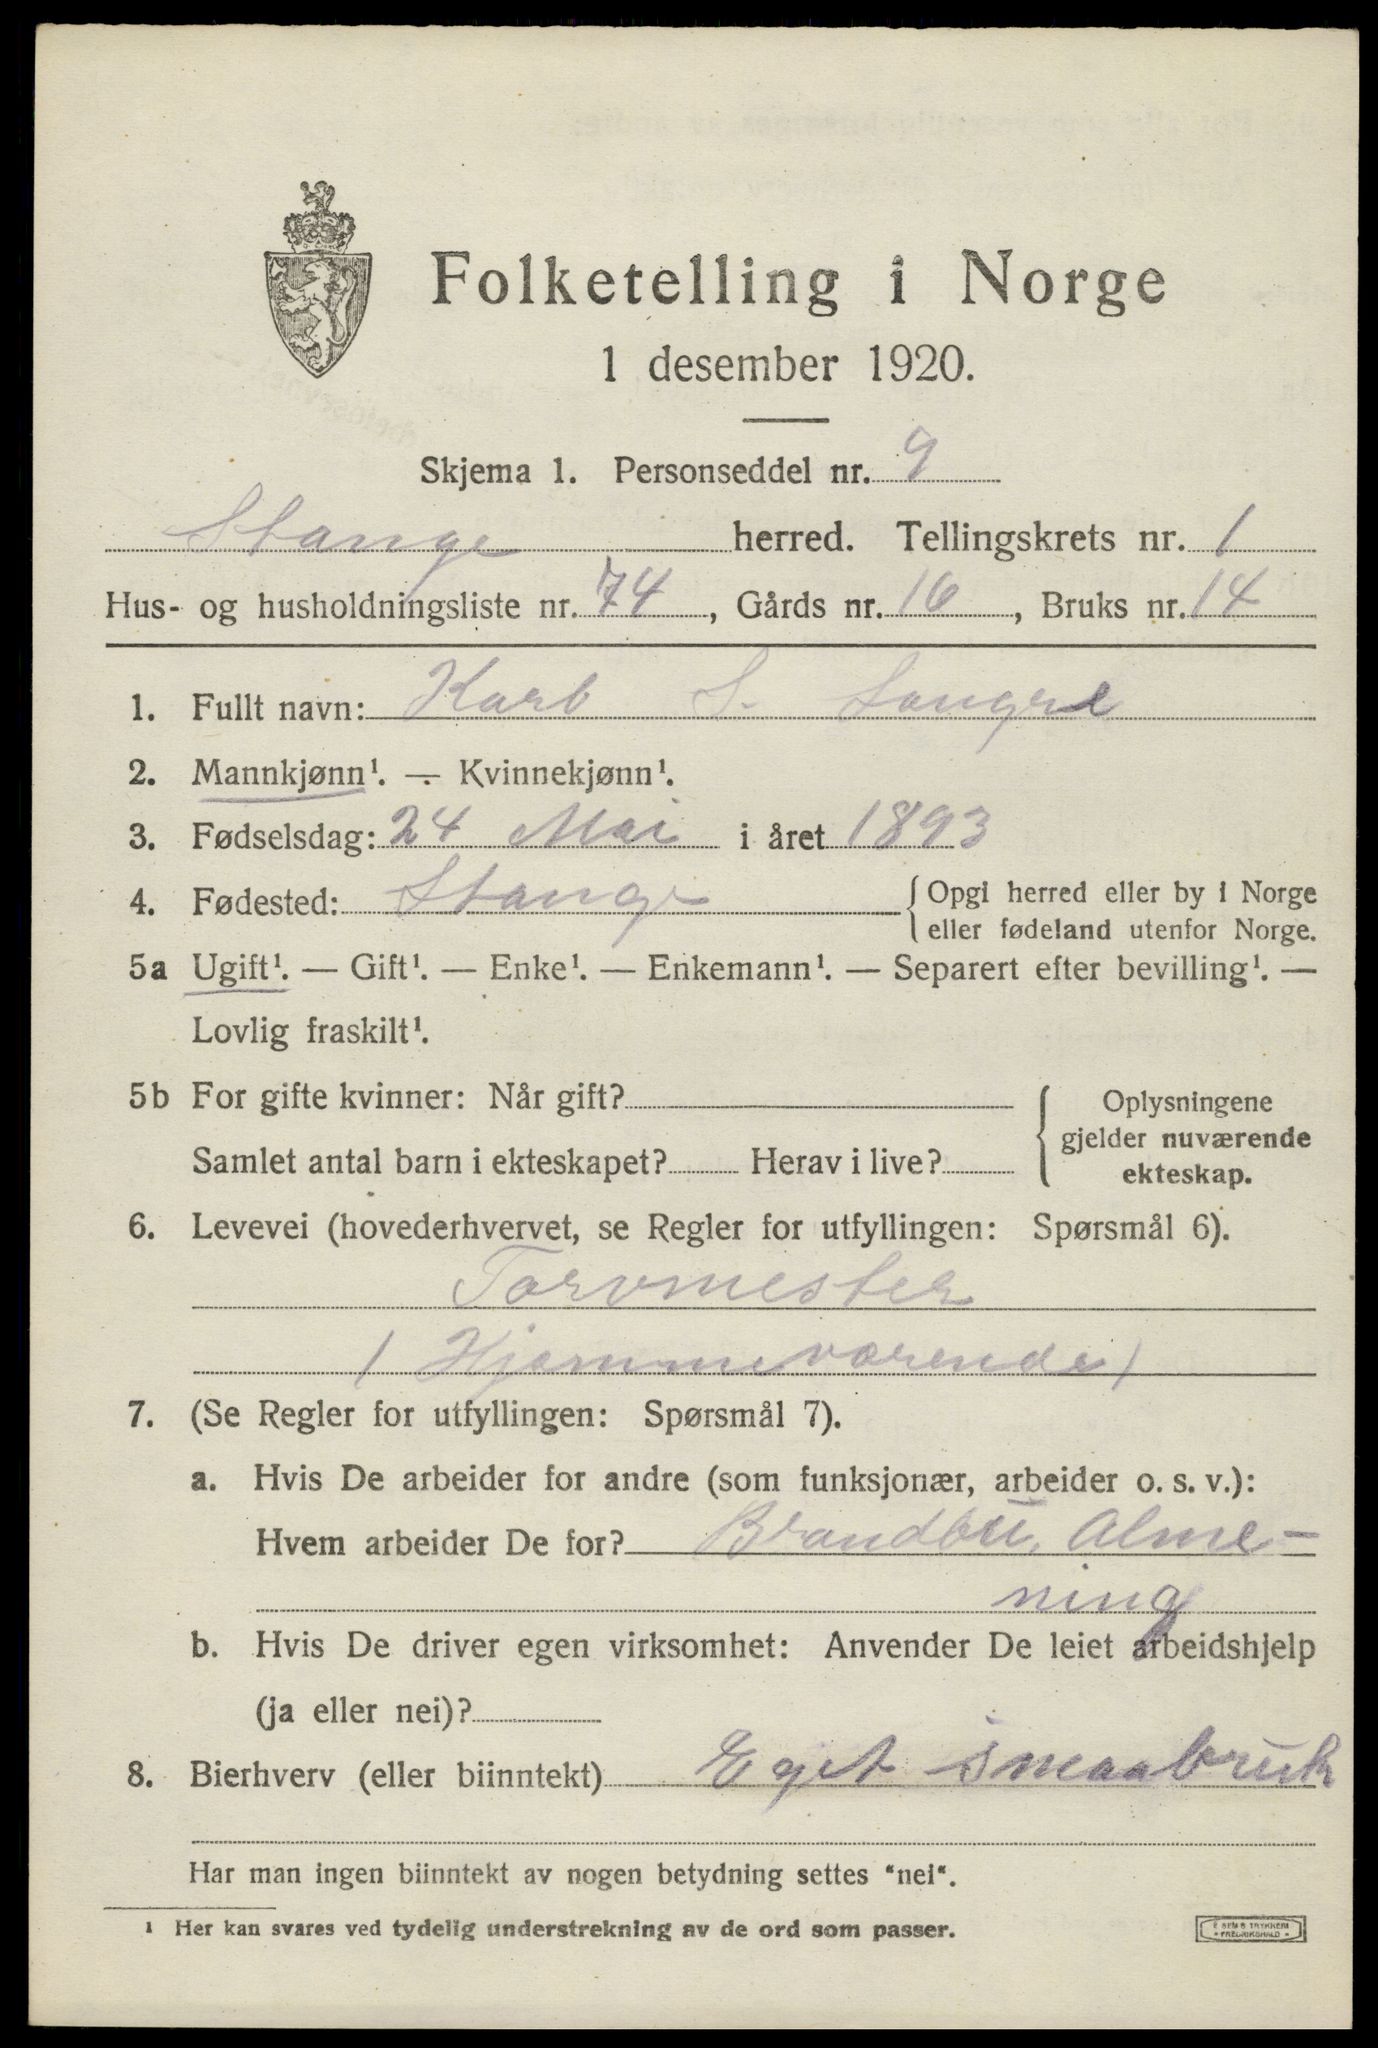 Folketelling i Norge
1 desember 1920.
Skjema 1. Personseddel nr. 9
Stange herred. Tellingskrets nr. 1
Hus- og husholdningsliste nr. 74, Gårds nr. 16, Bruks nr. 14
1. Fullt navn: Karl S.
2. Mannkjønn¹. — Kvinnekjønn¹.
3. Fødselsdag: 24 Mai i året 1893
4. Fødested: Stange { Opgi herred eller by i Norge
eller fødeland utenfor Norge.
5a Ugift¹. — Gift¹. — Enke¹. — Enkemann¹. — Separert efter bevilling¹. —
Lovlig fraskilt¹.
5b For gifte kvinner: Når gift? { Oplysningene
gjelder nuværende
Samlet antal barn i ekteskapet? Herav i live? ekteskap.
6. Levevei (hovederhvervet, se Regler for utfyllingen: Spørsmål 6).
Torvmester
(Hjemmeværende)
7. (Se Regler for utfyllingen: Spørsmål 7).
a. Hvis De arbeider for andre (som funksjonær, arbeider o. s. v.):
Hvem arbeider De for? Brandbu, Alme-
ning
b. Hvis De driver egen virksomhet: Anvender De leiet arbeidshjelp
(ja eller nei)?
8. Bierhverv (eller biinntekt) Eget smaabruk
Har man ingen biinntekt av nogen betydning settes "nei".
¹ Her kan svares ved tydelig understrekning av de ord som passer.
E SEM'S TRYKKERI
FREDRIKSHALD